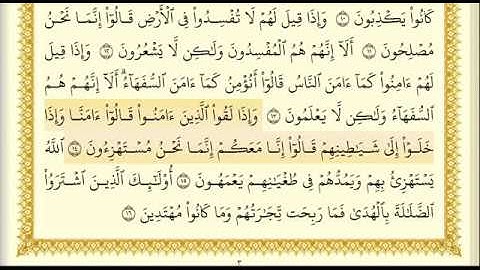 كَانُوا۟ يَكْذِبُونَ ١٠ وَإِذَا قِيلَ لَهُمْ لَا تُفْسِدُوا۟ فِى ٱلْأَرْضِ قَالُوٓا۟ إِنَّمَا نَحْنُ
مُصْلِحُونَ ١١ أَلَآ إِنَّهُمْ هُمُ ٱلْمُفْسِدُونَ وَلَـٰكِن لَّا يَشْعُرُونَ ١٢ وَإِذَا قِيلَ
لَهُمْ ءَامِنُوا۟ كَمَآ ءَامَنَ ٱلنَّاسُ قَالُوٓا۟ أَنُؤْمِنُ كَمَآ ءَامَنَ ٱلسُّفَهَآءُ ۗ أَلَآ إِنَّهُمْ هُمُ
ٱلسُّفَهَآءُ وَلَـٰكِن لَّا يَعْلَمُونَ ١٣ وَإِذَا لَقُوا۟ ٱلَّذِينَ ءَامَنُوا۟ قَالُوٓا۟ ءَامَنَّا وَإِذَا
خَلَوْا۟ إِلَىٰ شَيَـٰطِينِهِمْ قَالُوٓا۟ إِنَّا مَعَكُمْ إِنَّمَا نَحْنُ مُسْتَهْزِءُونَ ١٤ ٱللَّهُ
يَسْتَهْزِئُ بِهِمْ وَيَمُدُّهُمْ فِى طُغْيَـٰنِهِمْ يَعْمَهُونَ ١٥ أُو۟لَـٰٓئِكَ ٱلَّذِينَ ٱشْتَرَوُا۟
ٱلضَّلَـٰلَةَ بِٱلْهُدَىٰ فَمَا رَبِحَت تِّجَـٰرَتُهُمْ وَمَا كَانُوا۟ مُهْتَدِينَ ١٦
٣